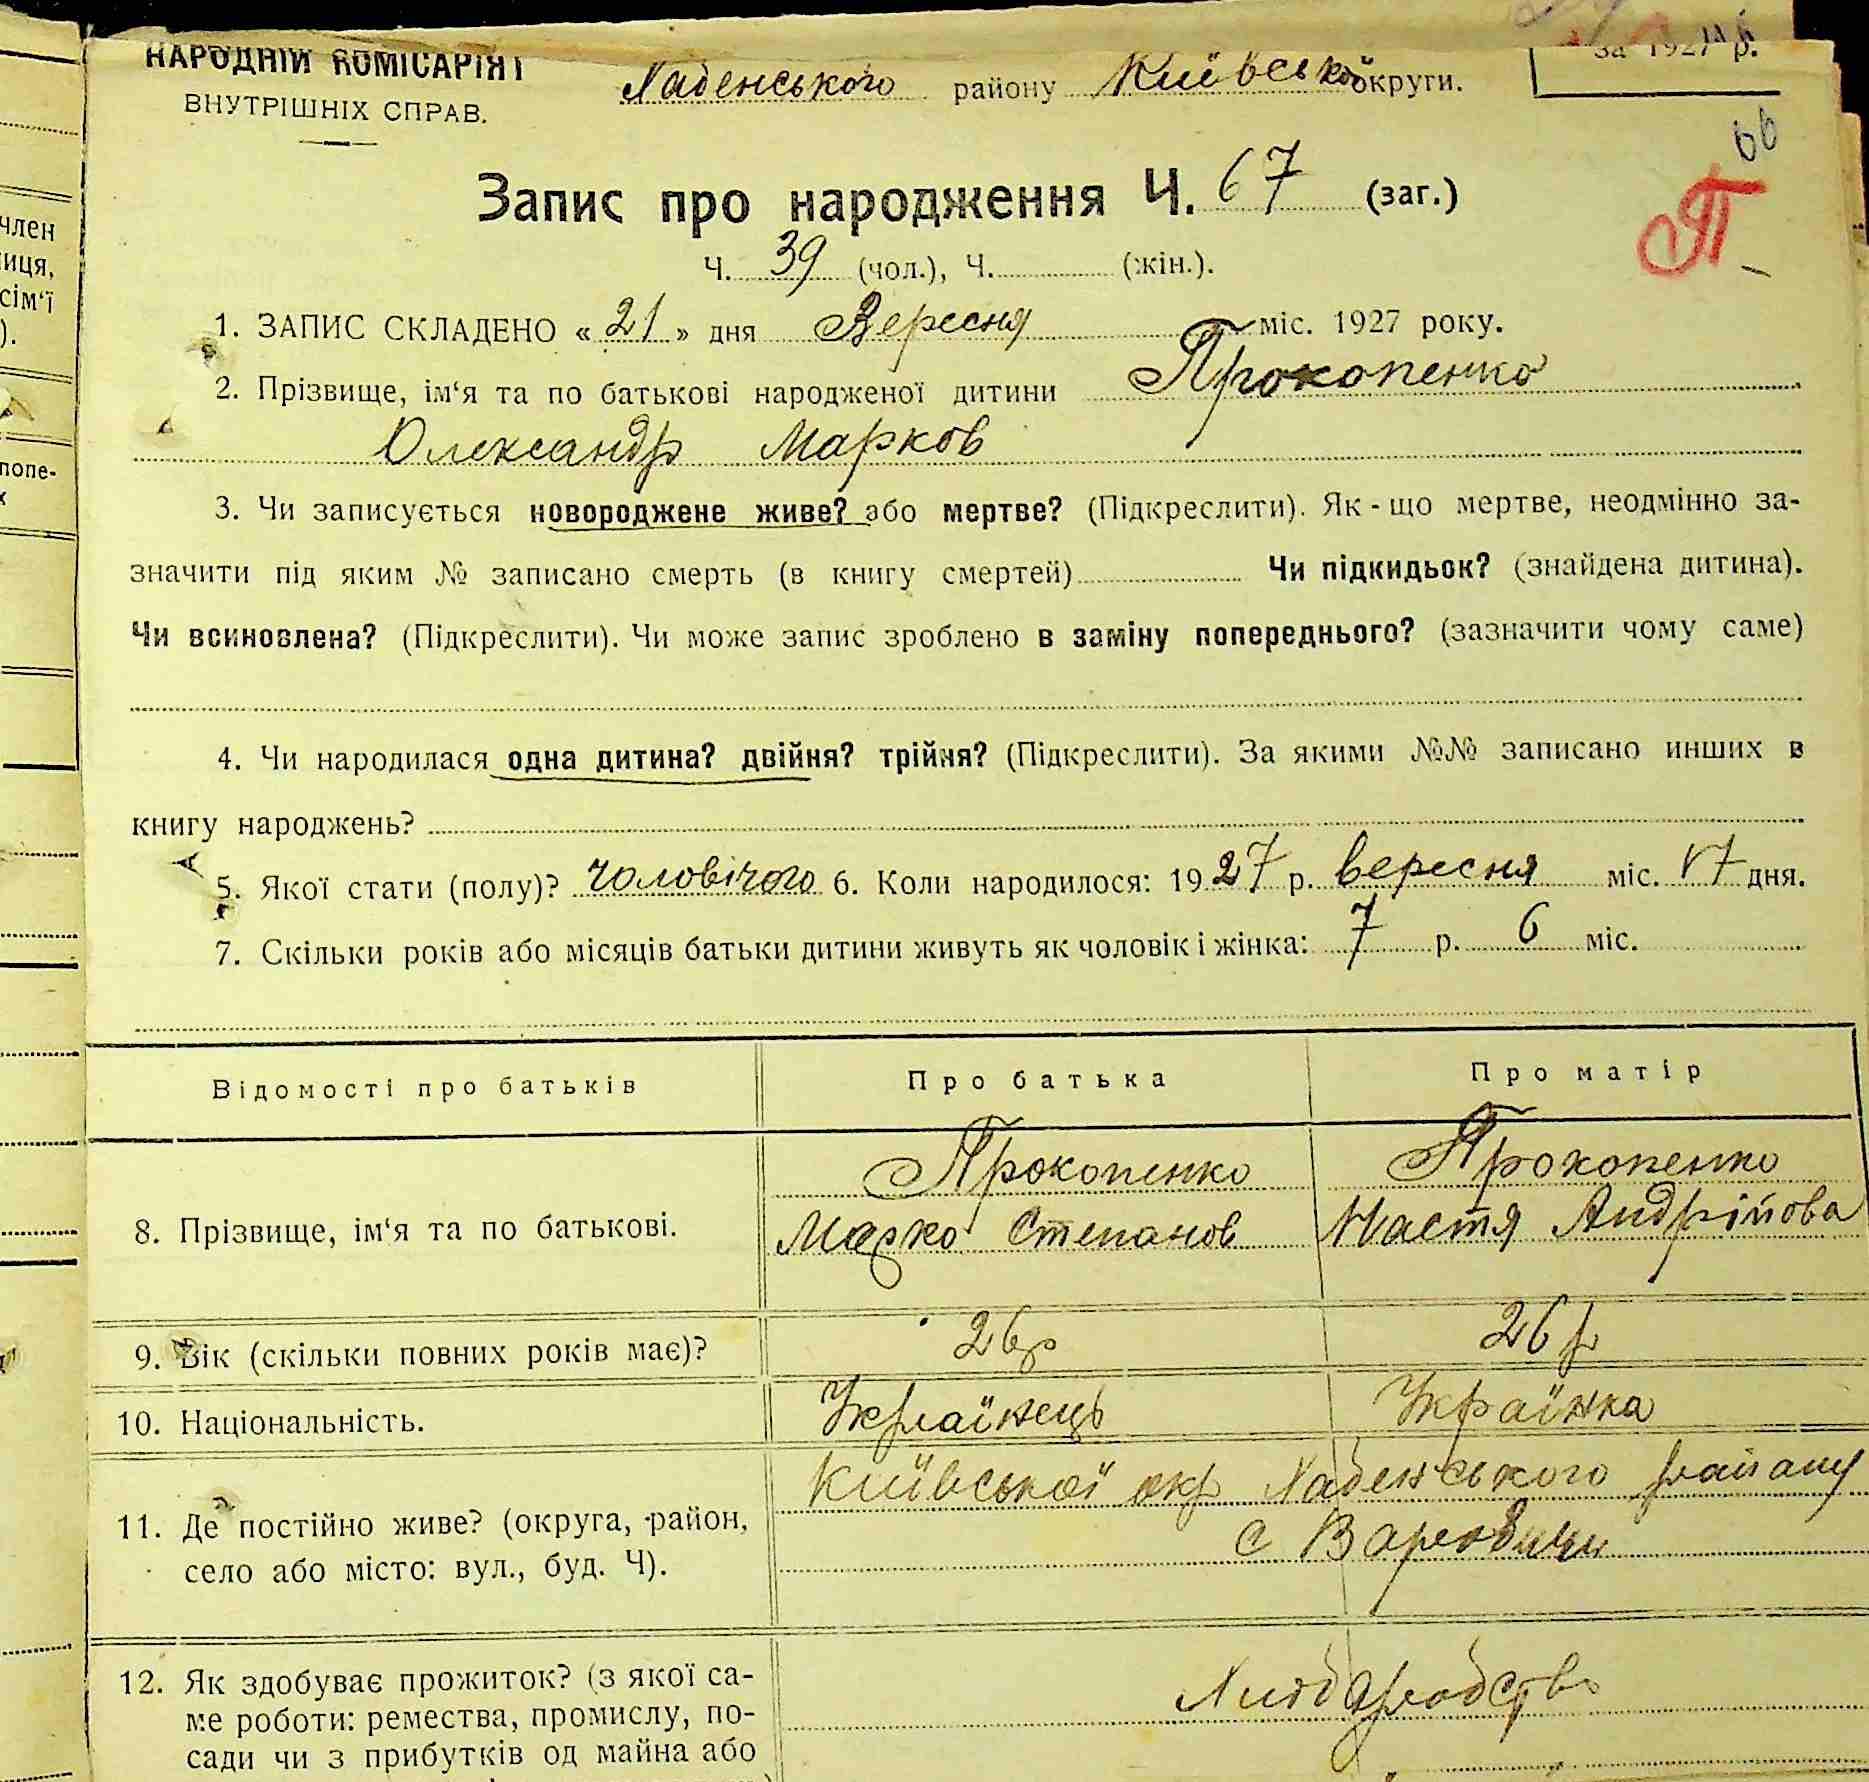 НАРОДНІЙ КОМІСАРІЯТ
ВНУТРІШНІХ СПРАВ.
Хабенського району Київської округи.
за 1927 р.
66
П
Запис про народження Ч. 67 (заг.)
Ч. 39 (чол.), Ч. (жін.).
1. ЗАПИС СКЛАДЕНО « 21 » дня Вересня міс. 1927 року.
2. Прізвище, ім‘я та по батькові народженої дитини Прокопенко
Олександр Марков
3. Чи записується новороджене живе? або мертве? (Підкреслити). Як - що мертве, неодмінно за-
значити під яким № записано смерть (в книгу смертей) Чи підкидьок? (знайдена дитина).
Чи всиновлена? (Підкреслити). Чи може запис зроблено в заміну попереднього? (зазначити чому саме)
4. Чи народилася одна дитина? двійня? трійня? (Підкреслити). За якими №№ записано инших в
книгу народжень?
5. Якої стати (полу)? чоловічого 6. Коли народилося: 1927 р. вересня міс. 17 дня.
7. Скільки років або місяців батьки дитини живуть як чоловік і жінка: 7 р. 6 міс.
Відомості про батьків Про батька Про матір
8. Прізвище, ім‘я та по батькові. Прокопенко Прокопенко
Марко Степанов Настя Андрійова
9. Вік (скільки повних років має)? 26 р 26 р
10. Національність. Українець Українка
11. Де постійно живе? (округа, район, село або місто: вул., буд. Ч). Київської окр Хабенського району
с Варовичи
12. Як здобуває прожиток? (з якої са-
ме роботи: ремества, промислу, по-
сади чи з прибутків од майна або
Хліборобство
член
иця,
сім‘ї
).
попе-
х